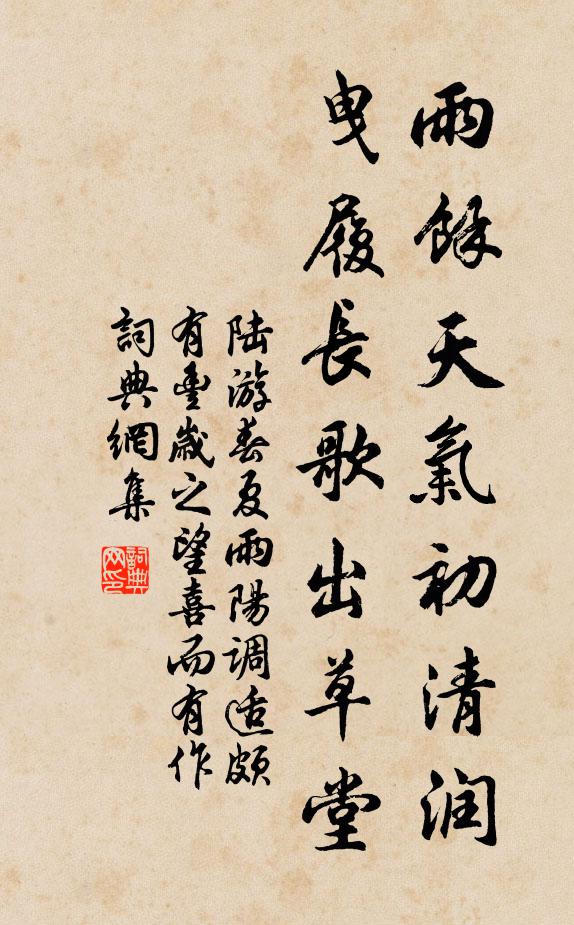 雨餘天氣初清润
曳履長歌出草堂
陆游春夏雨陽调适頗
有豐歲之望喜而有作
詞典網集
詞典网印